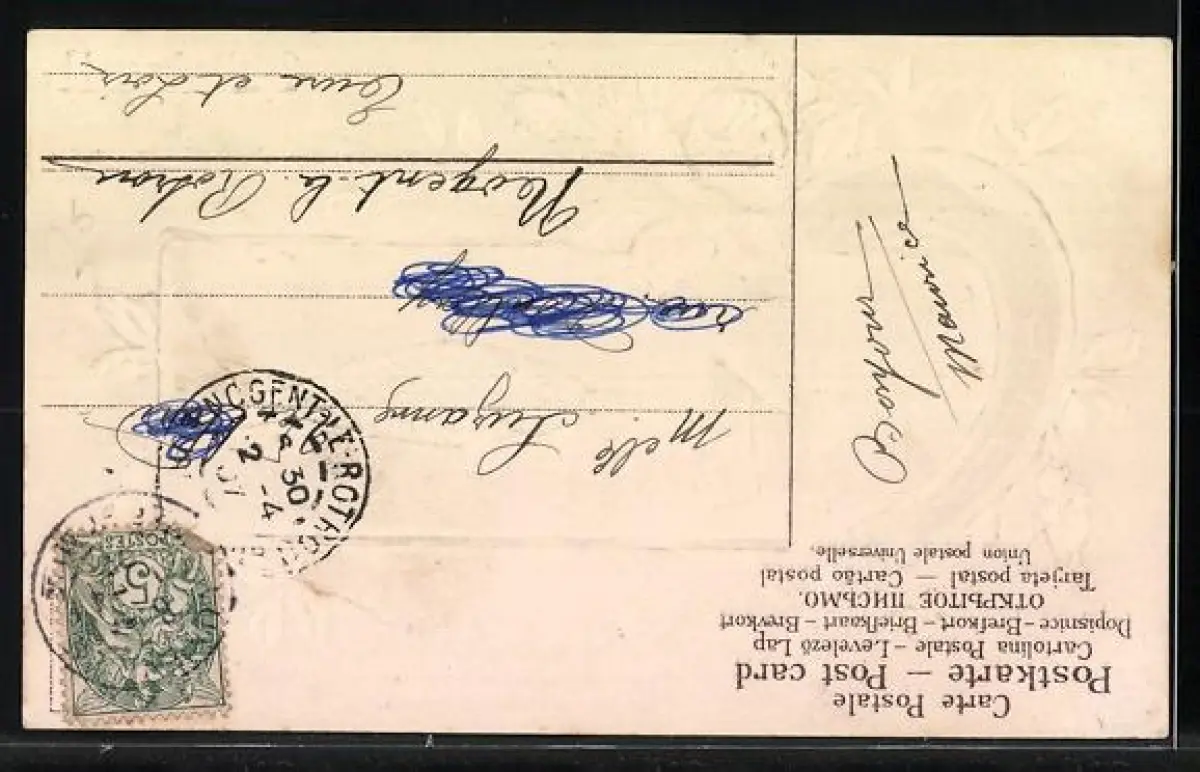 Carte Postale
Postkarte — Post card
Cartolina Postale – Levelező Lap
Dopisnice – Brefkort – Briefkaart – Brevkort
ОТКРЫТОЕ ПИСЬМО.
Tarjeta postal — Cartão postal
Union postale Universelle.
Maurice
Melle Suzanne
Nogent-le-Rotrou
Eure et Loir
NOGENT-LE-ROTROU
30
2 -4
07
POSTES
5